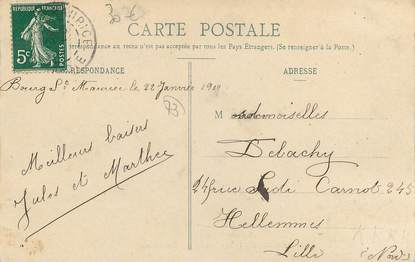 30€
CARTE POSTALE
correspondance au recto n'est pas acceptée par tous les Pays Étrangers. (Se renseigner à la Poste.)
RRESPONDANCE
ADRESSE
5c
Bourg St Maurice le 22 Janvier
73
Meilleurs baisers
Jules et Marthe
Mademoiselles
Debachy
24 rue Sadi Carnot 245
Hellemmes
Lille (Nord)